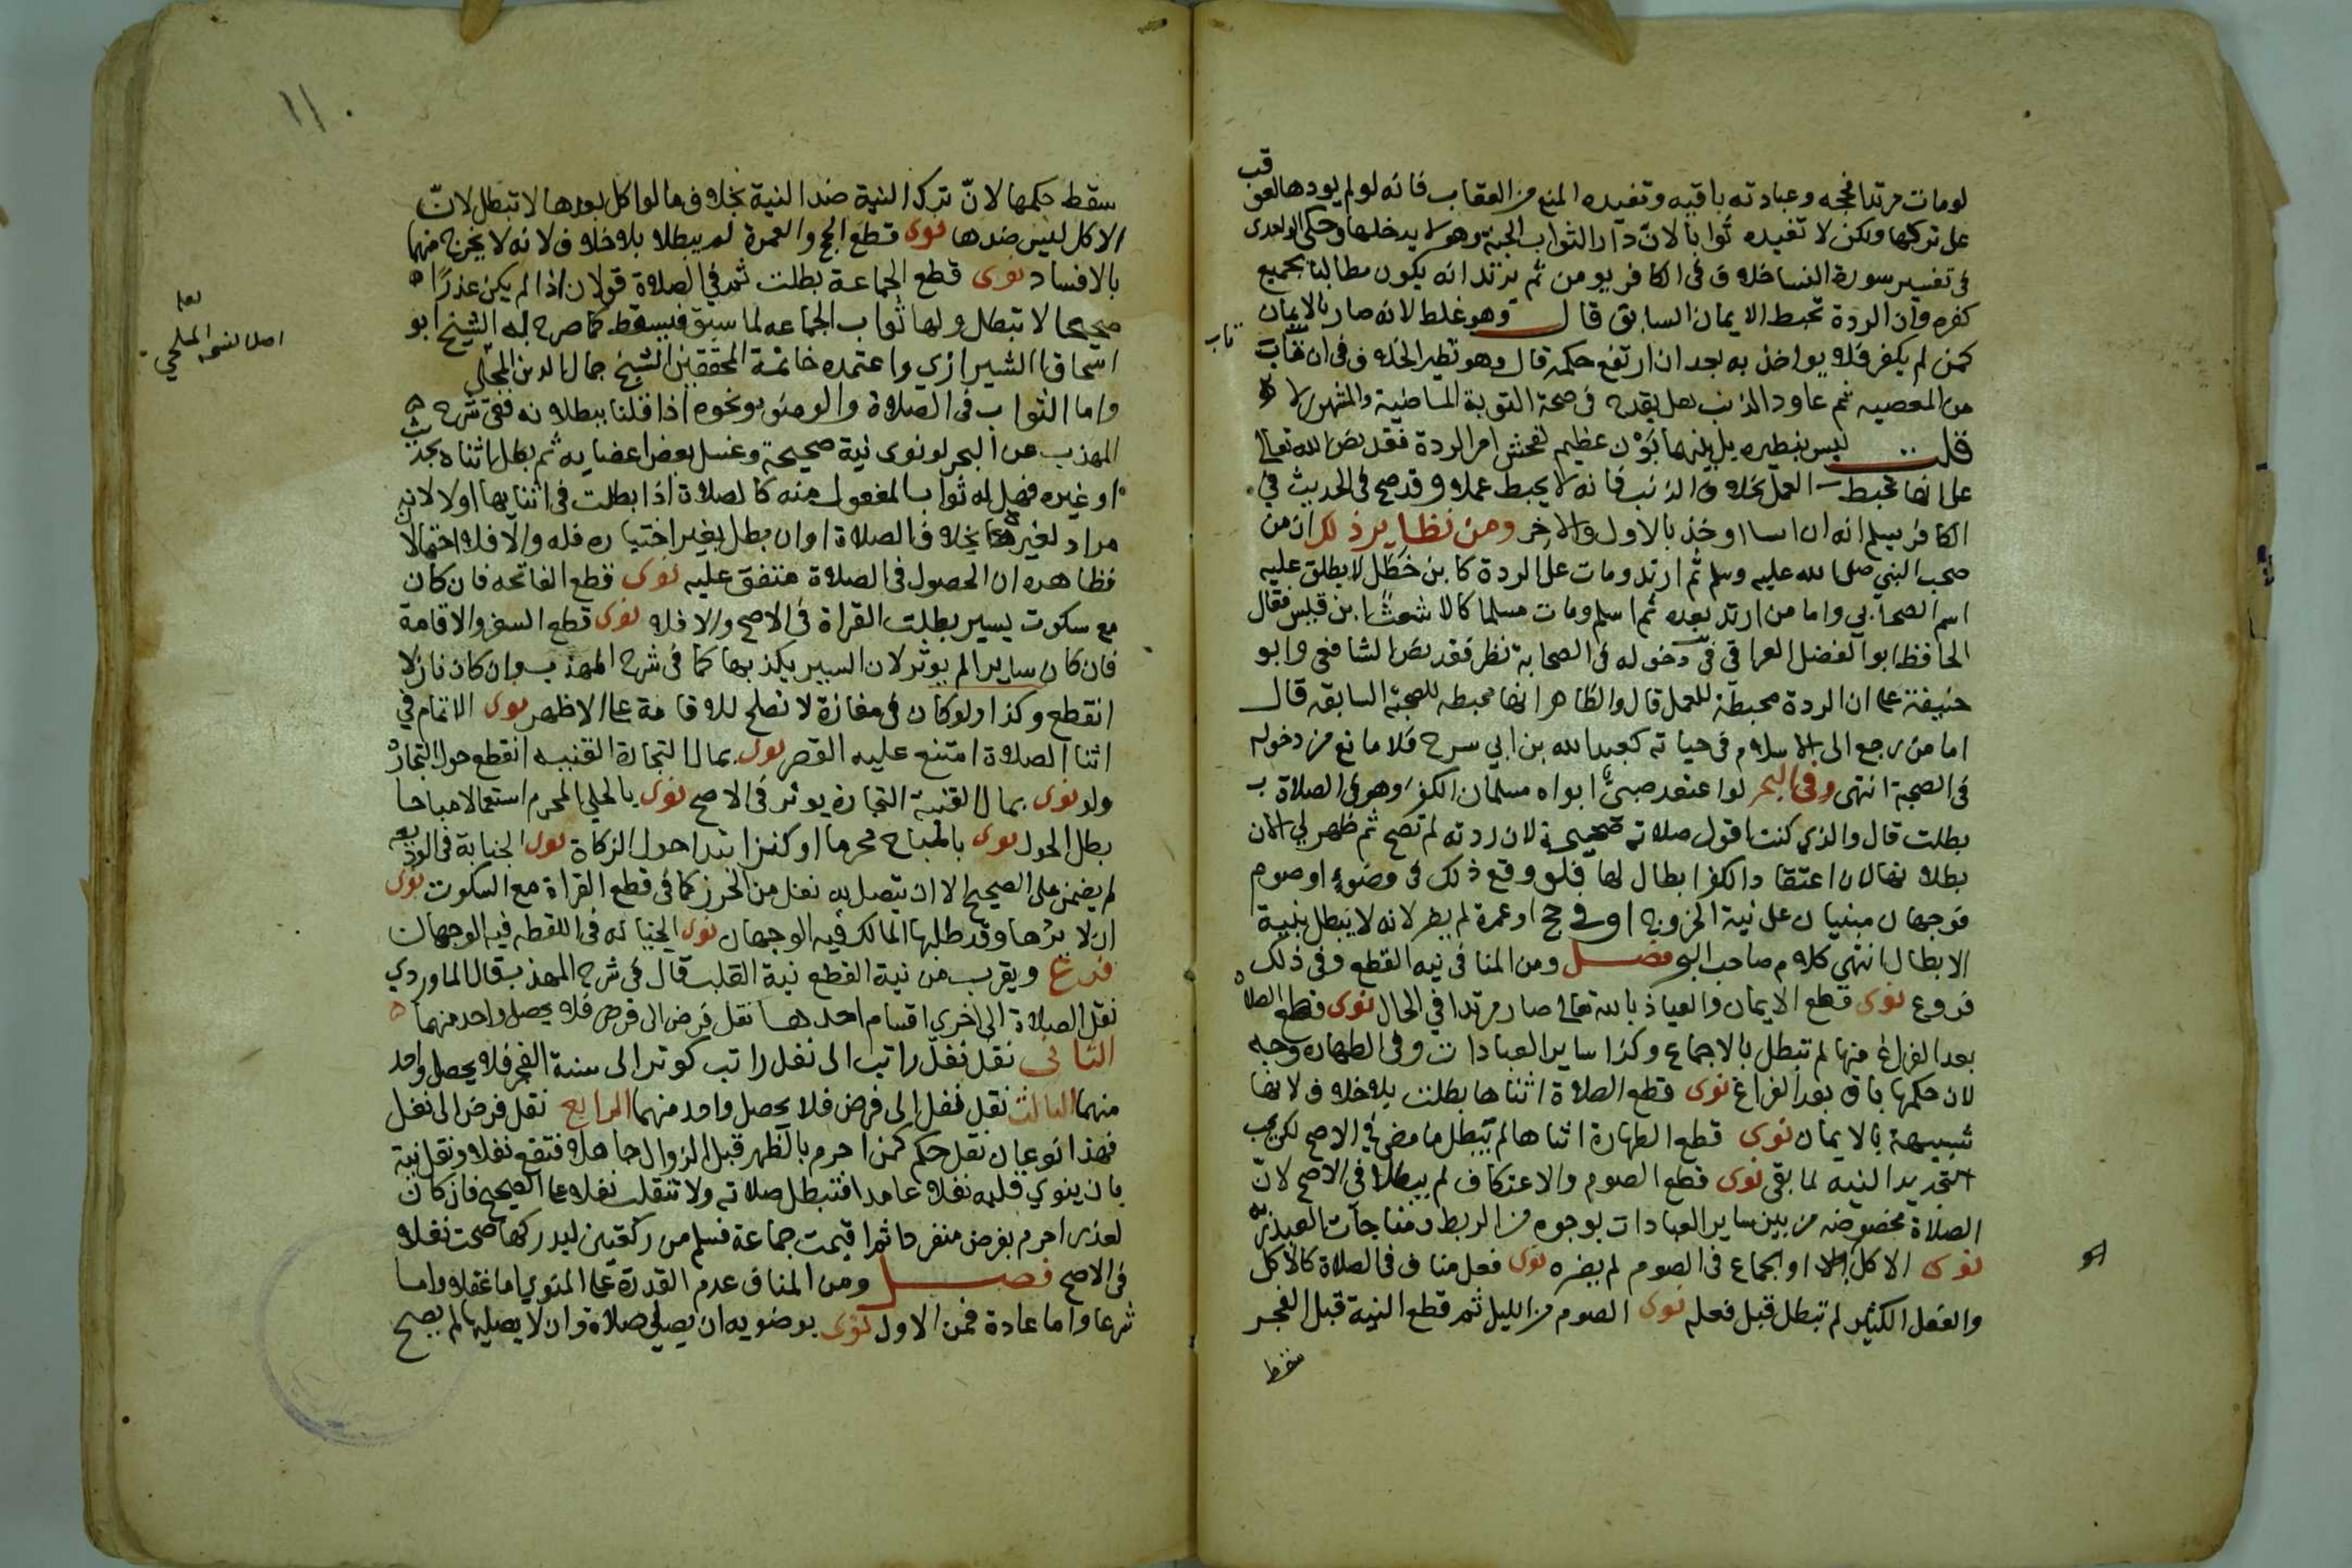 لو مات مرتدا فحجه وعبادته باقيه وتفيده المنع من العقاب فانه لو لم يودها لعوقب
على تركها ولكن لا تفيده ثوابا لان دار الثواب الجنة وهو لا يدخلها وحكى الواحدى
في تفسير سورة النسا خلاف في الكافر يومن ثم يرتد انه يكون مطالبا بجميع
كفره وان الردة تحبط الايمان السابق قال وهو غلط لانه صار بالايمان
كمن لم يكفر فلا يواخذ به بعد ان ارتفع حكمه قال وهو نظير الخلاف في ان من تاب
تاب
من المعصيه ثم عاود الذنب هل يقدح في صحة التوبة الماضية والمشهور لا
قلت ليس بنظيره بل بينهما بون عظيم لفحش امر الردة فقد نص الله تعالى
على انها تحبط العمل بخلاف الذنب فانه لا يحبط عملا وقد صح في الحديث في
الكافر يسلم انه ان اسا اوخذ بالاول والاخر ومن نظاير ذلك ان من
صحب النبي صلى الله عليه وسلم ثم ارتد ومات على الردة كابن خطل لا يطلق عليه
اسم الصحابي واما من ارتد بعده ثم اسلم ومات مسلما كالاشعث ابن قيس فقال
الحافظ ابو الفضل العراقي في دخوله في الصحابة نظر فقد نص الشافعي وابو
حنيفة على ان الردة محبطة للعمل قال والظاهر انها محبطه للصحبة السابقه قال
اما من رجع الى الاسلام في حياته كعبد الله بن ابي سرح فلا مانع من دخوله
في الصحبة انتهى وفي البحر لو اعتقد صبي ابواه مسلمان الكفر وهو في الصلاة
بطلت قال والذي كنت اقول صلاته صحيحة لان ردته لم تصح ثم ظهر لي الان
بطلانها لان اعتقاد الكفر ابطال لها فلو وقع ذلك في وضوء او صوم
فوجهان مبنيان على نية الخروج او في حج او عمرة لم يضر لانه لا يبطل بنية
الابطال انتهى كلام صاحب البحر فصل ومن المنافي نيه القطع وفي ذلك
فروع نوى قطع الايمان والعياذ بالله تعالى صار مرتدا في الحال نوى قطع الصلاة
بعد الفراغ منها لم تبطل بالاجماع وكذا ساير العبادات وفي الطهاره وجه
لان حكمها باق بعد الفراغ نوى قطع الصلاة اثناها بطلت بلا خلاف لانها
شبيهة بالايمان نوى قطع الطهارة اثناها لم يبطل ما مضى في الاصح لكن يجب
تجديد النيه لما بقى نوى قطع الصوم والاعتكاف لم يبطلا في الاصح لان
الصلاة مخصوصه من بين ساير العبادات بوجوه من الربط ومناجات العبد ربه
نوى الاكل او الجماع في الصوم لم يضره نوى فعل مناف في الصلاة كالاكل
والفعل الكثير لم تبطل قبل فعله نوى الصوم من الليل ثم قطع النية قبل الفجر
سقط
١١٠
سقط حكمها لان ترك النية ضد النية بخلاف ما لو اكل بعدها لا تبطل لان
الاكل ليس ضدها نوى قطع الحج والعمرة لم يبطلا بلا خلاف لانه لا يخرج منهما
بالافساد نوى قطع الجماعة بطلت ثم في الصلاة قولان اذا لم يكن عذرا
صحيحا لا تبطل ولها ثواب الجماعه لما سبق فيسقط كما صرح به الشيخ ابو
اسحاق الشيرازي واعتمده خاتمة المحققين الشيخ جمال الدين المحلي
لعل
اصل النسخه المحلي
واما الثواب في الصلاة والوضوء ونحوه اذا قلنا ببطلانه ففي شرح
المهذب عن البحر لو نوى نية صحيحة وغسل بعض اعضايه ثم بطل اثناه بحدث
او غيره فهل له ثواب المفعول منه كالصلاة اذا بطلت في اثنايها او لا لانه
مراد لغيرها بخلاف الصلاة او ان بطل بغير اختياره فله والا فلا احتمالات
فظاهره ان الحصول في الصلاة متفق عليه نوى قطع الفاتحه فان كان
مع سكوت يسير بطلت القراة في الاصح والا فلا نوى قطع السفر والاقامة
فان كان سايرا لم يوثر لان السير يكذبها كما في شرح المهذب وان كان نازلا
انقطع وكذا ولو كان في مفازة لا تصلح للاقامة على الاظهر نوى الاتمام في
اثنا الصلاة امتنع عليه القصر نوى بمال التجارة القنيه انقطع حول التجارة
ولو نوى بمال القنية التجارة يوثر في الاصح نوى بالحلي المحرم استعمالا مباحا
بطل الحول نوى بالمباح محرما او كنزا ابتدا حول الزكاة نوى الجناية في الوديعه
لم يضمن على الصحيح الا ان يتصل به نقل من الحرز كما في قطع القراة مع السكوت نوى
ان لا يردها وقد طلبها المالك فيه الوجهان نوى الخيانه في اللقطه فيه الوجهان
فرع ويقرب من نية القطع نية القلب قال في شرح المهذب قال الماوردي
نقل الصلاة الى اخرى اقسام احدها نقل فرض الى فرض فلا يحصل واحد منهما
الثاني نقل نفل راتب الى نفل راتب كوتر الى سنة الفجر فلا يحصل واحد
منهما الثالث نقل نفل الى فرض فلا يحصل واحد منهما الرابع نقل فرض الى نفل
فهذا نوعان نقل حكم كمن احرم بالظهر قبل الزوال جاهلا فتقع نفلا ونقل نية
بان ينوي قلبه نفلا عامدا فتبطل صلاته ولا تنقلب نفلا على الصحيح فان كان
لعذر احرم بفرض منفردا ثم اقيمت جماعة فسلم من ركعتين ليدركها صحت نفلا
في الاصح فصل ومن المنافي عدم القدرة على المنوي اما عقلا واما
شرعا واما عادة فمن الاول نوى بوضويه ان يصلي صلاة وان لا يصليها لم يصح